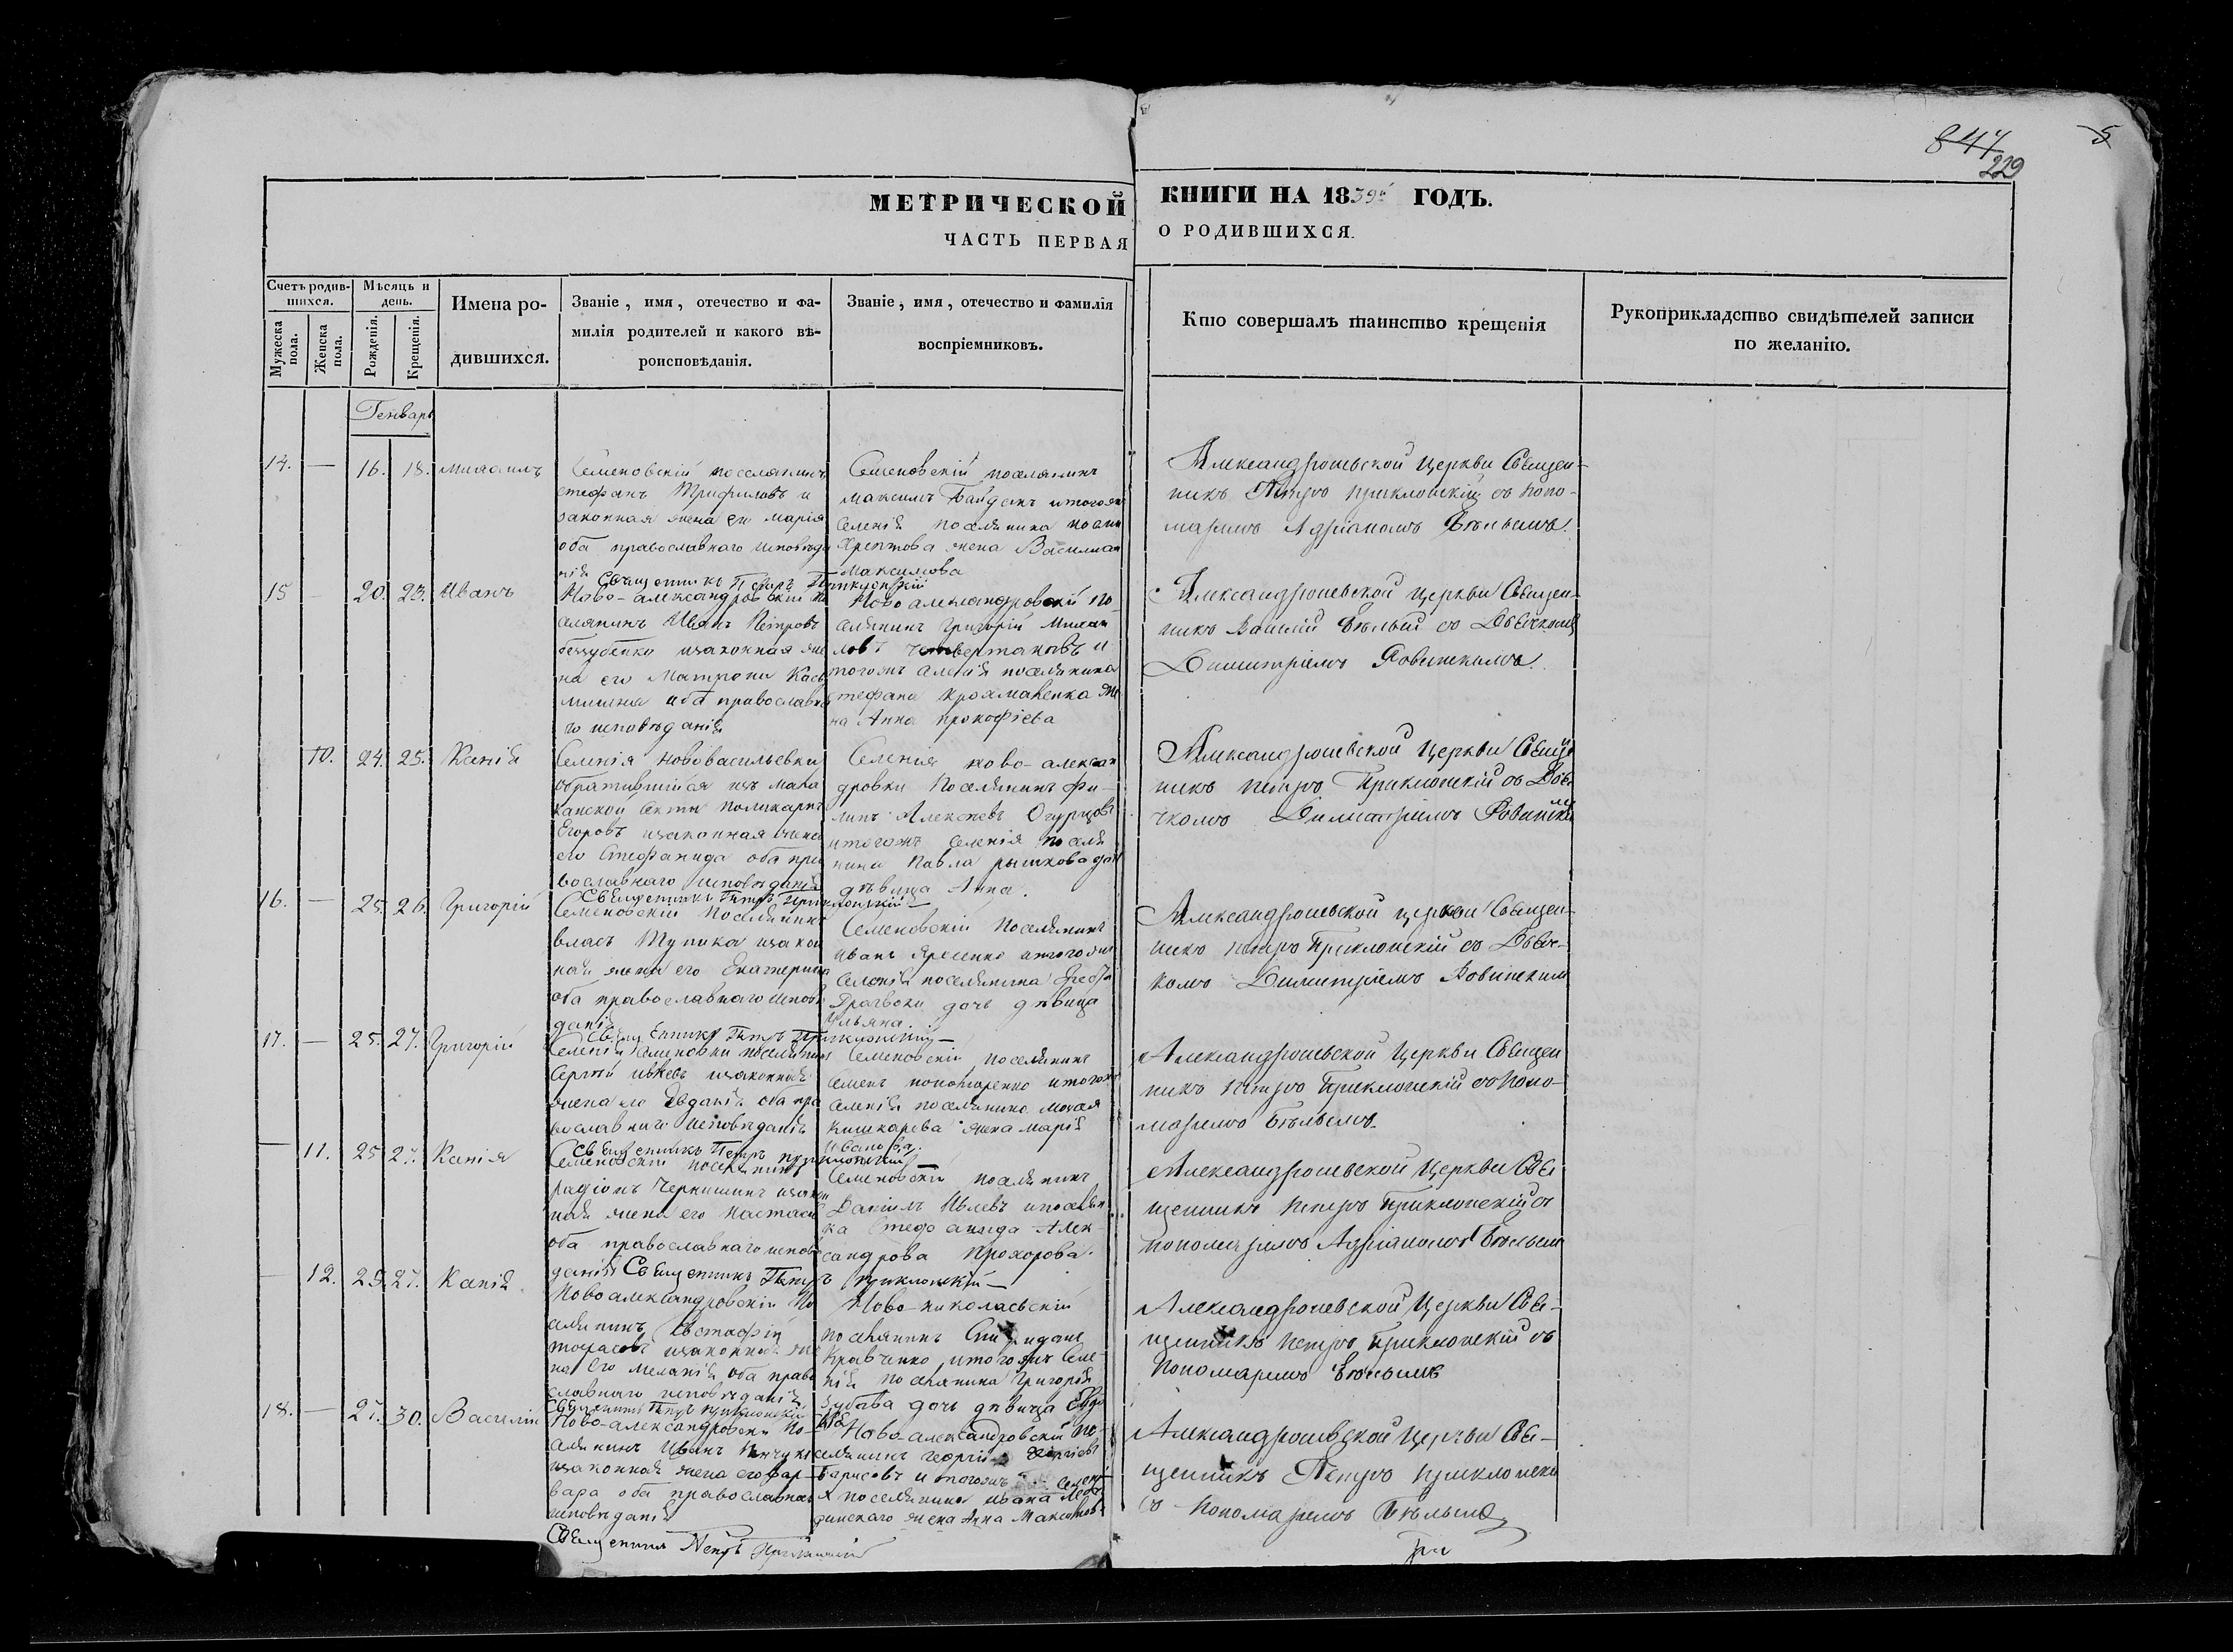 844
229
5
МЕТРИЧЕСКОЙ КНИГИ НА 1839й ГОДЪ.
ЧАСТЬ ПЕРВАЯ О РОДИВШИХСЯ.
Счетъ родившихся.
Мужеска пола.
Женска пола.
Мѣсяцъ и день.
Рожденія.
Крещенія.
Имена родившихся.
Званіе, имя, отечество и фамилія родителей и какого вѣроисповѣданія.
Званіе, имя, отечество и фамилія воспріемниковъ.
Кто совершалъ таинство крещенія
Рукоприкладство свидѣтелей записи по желанію.
Генварь
14. — 16. 18. Михаилъ
Семеновскій поселянинъ
стефанъ Трифиловъ и
законная жена ег Марія
оба православнаго исповѣда
нія Священникъ Петръ Приклонскій
Семеновскій поселянинъ
Максимъ Байдакъ итогожъ
селенія поселянина
Хрептова жена Василиса
Максимова
Александровской Церкви Священ-
никъ Петръ Приклонскій съ поно-
маремъ Адріаномъ Бѣлымъ.
15 — 20. 23. Иванъ
Ново-александровскій по
селянинъ Иванъ Петровъ
беззубенко изаконная же
на его Матрона
оба православна
го исповѣданія
Ново александровскій по
селянинъ Григорій Михаи
ловъ Четвертаковъ и
тогожъ селенія поселянина
стефана Крохмаленка же
на Анна прокофіева
Александровской Церкви Священ-
никъ Василій Бѣлый съ Дьячкомъ
Димитріемъ Ровинскимъ.
10. 24. 25. Ксенія
Селенія Нововасильевки
обратившійся изъ мала
канской секты поликарпъ
Егоровъ изаконная жена
его Стефанида оба пра
вославнаго исповѣданія
Священникъ Петръ Приклонскій —
Селенія ново-алексан
дровки Поселянинъ Фи-
липъ Алексѣевъ Огурцовъ
итогожъ селенія поселя
нина Павла рышкова доч
дѣвица Анна.
Александровской Церкви Свяще
никъ Петръ Приклонскій съ Дья
чкомъ Димитріемъ Ровински
мъ
16. — 25. 26. Григорій
Семеновскій Поселянинъ
власъ Тупика изакон
ная жена его Екатерина
оба православнаго исповѣ
данія Священникъ Петръ Приклонскій —
Семеновскій Поселянинъ
иванъ Яресенко итогожъ
селенія поселянина
дочь дѣвица
Ульяна.
Александровской церкви Священ-
никъ Петръ Приклонскій съ Дьяч-
комъ Димитріемъ Ровинским
17. — 25. 27. Григорій
Селенія Семеновки поселянинъ
Сергѣй изаконная
жена его Евдокія оба пра
вославнаго исповѣданія
Священникъ Петръ приклонскій —
Семеновскій поселянинъ
Семенъ пономаренко итогожъ
селенія поселянина
Кишкарева жена Марія
Иванова.
Александровской Церкви Священ
никъ Петръ Приклонскій съ Поно-
маремъ Бѣлымъ.
— 11. 25 27. Ксенія
Семеновскій поселянинъ
радіонъ Чернишинъ изакон
ная жена его Настасія
оба православнаго исповѣ
данія Священникъ Петръ приклонскій —
Семеновскій поселянинъ
Даніилъ Ивлевъ ипоселян
ка Стефанида Алек
сандрова Прохорова.
Александровской Церкви Свя
щенникъ Петръ Приклонскій съ
пономаремъ Адріаномъ Бѣлым
— 12. 25. 27. Ксенія.
Новоалександровскій По
селянинъ Евстафій
тарасовъ изаконная же
на его Меланія оба право
славнаго исповѣданія
Священникъ Петръ приклонскій
Ново-николаевскій
поселянинъ Спиридонъ
Кравченко, итогожъ Селе
нія поселянина Григорія
Зубова дочь дѣвица Евдо
кія
Александровской Церкви Свя-
щенникъ Петръ Приклонскій съ
Пономаремъ Бѣлымъ
18. — 27. 30. Василій
Ново-александровскій по-
селянинъ Иванъ
изаконная жена его вар-
вара оба православнаг
исповѣданія
Священникъ Петръ Приклонскій
Ново-александровскій по-
селянинъ георгій Георгіевъ
Борисовъ итогожъ селен-
я поселянина ивана
жена Анна Максимов
Александровской Церкви Свя-
щенникъ Петръ приклонскі
съ Пономаремъ Бѣлымъ
При